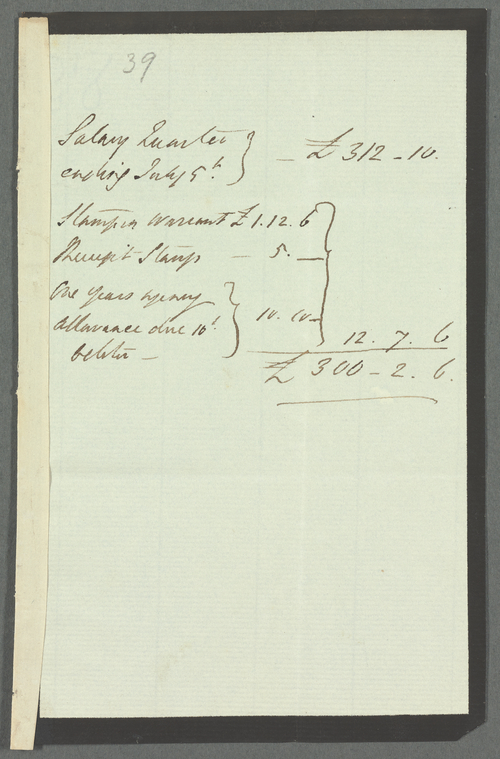 39
Salary Quarter
ending July 5th } — £ 312 – 10.
Stamp on Warrant £ 1. 12. 6
Receipt Stamp — 5. —
One years agency
allowance due 10th } 10. 10 –
12. 7. 6
£ 300 – 2. 6.